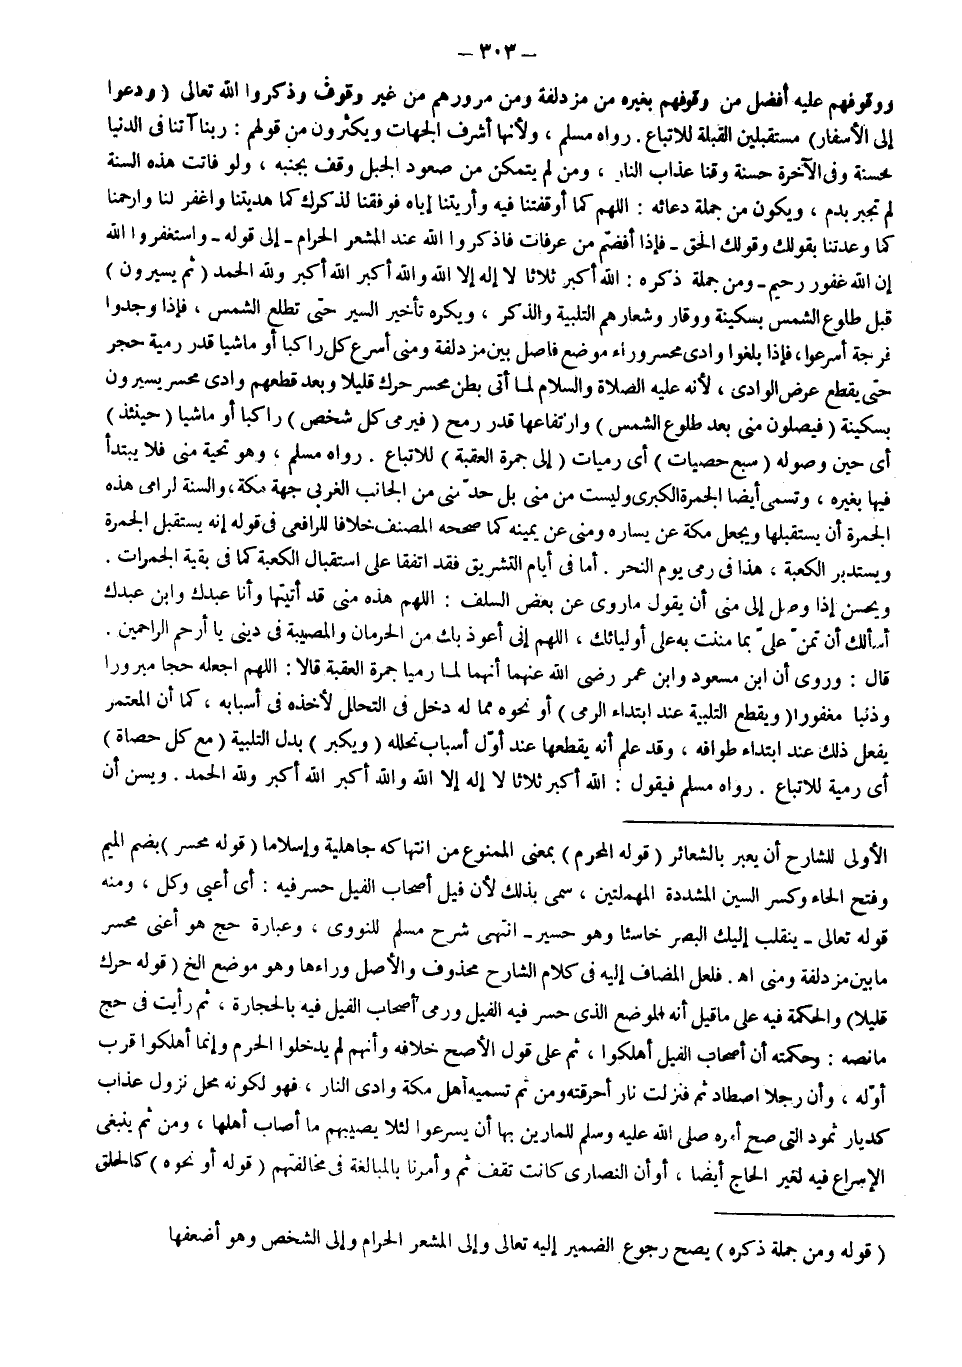 – ٣٠٣ –
ووقوفهم عليه أفضل من وقوفهم بغيره من مزدلفة ومن مرورهم من غير وقوف وذكروا الله تعالى ( ودعوا
إلى الأسفار) مستقبلين القبلة للاتباع . رواه مسلم ، ولأنها أشرف الجهات ويكثرون من قولهم : ربنا آتنا فى الدنيا
حسنة وفى الآخرة حسنة وقنا عذاب النار ، ومن لم يتمكن من صعود الجبل وقف بجنبه ، ولو فاتت هذه السنة
لم تجبر بدم ، ويكون من جملة دعائه : اللهم كما أوقفتنا فيه وأريتنا إياه فوفقنا لذكرك كما هديتنا واغفر لنا وارحمنا
كما وعدتنا بقولك وقولك الحق ـ فإذا أفضتم من عرفات فاذكروا الله عند المشعر الحرام ـ إلى قوله ـ واستغفروا الله
إن الله غفور رحيم ـ ومن جملة ذكره : الله أكبر ثلاثا لا إله إلا الله والله أكبر الله أكبر ولله الحمد ( ثم يسيرون )
قبل طلوع الشمس بسكينة ووقار وشعارهم التلبية والذكر ، ويكره تأخير السير حتى تطلع الشمس ، فإذا وجدوا
فرجة أسرعوا، فإذا بلغوا وادى محسر وراء موضع فاصل بين مزدلفة ومنى أسرع كل راكبا أو ماشيا قدر رمية حجر
حتى يقطع عرض الوادى ، لأنه عليه الصلاة والسلام لما أتى بطن محسر حرك قليلا وبعد قطعهم وادى محسر يسيرون
بسكينة ( فيصلون منى بعد طلوع الشمس ) وارتفاعها قدر رمح ( فيرمى كل شخص ) راكبا أو ماشيا ( حينئذ )
أى حين وصوله ( سبع حصيات ) أى رميات ( إلى جمرة العقبة ) للاتباع . رواه مسلم ، وهو تحية منى فلا يبتدأ
فيها بغيره ، وتسمى أيضا الجمرة الكبرى وليست من منى بل حد منى من الجانب الغربى جهة مكة ، والسنة لرامى هذه
الجمرة أن يستقبلها ويجعل مكة عن يساره ومنى عن يمينه كما صححه المصنف خلافا للرافعى فى قوله إنه يستقبل الجمرة
ويستدبر الكعبة ، هذا فى رمى يوم النحر . أما فى أيام التشريق فقد اتفقا على استقبال الكعبة كما فى بقية الجمرات .
ويحسن إذا وصل إلى منى أن يقول ماروى عن بعض السلف : اللهم هذه منى قد أتيتها وأنا عبدك وابن عبدك
أسألك أن تمنّ علىّ بما مننت به على أوليائك ، اللهم إنى أعوذ بك من الحرمان والمصيبة فى دينى يا أرحم الراحمين .
قال : وروى أن ابن مسعود وابن عمر رضى الله عنهما أنهما لما رميا جمرة العقبة قالا : اللهم اجعله حجا مبرورا
وذنبا مغفورا( ويقطع التلبية عند ابتداء الرمى ) أو نحوه مما له دخل فى التحلل لأخذه فى أسبابه ، كما أن المعتمر
يفعل ذلك عند ابتداء طوافه ، وقد علم أنه يقطعها عند أوّل أسباب تحلله ( ويكبر ) بدل التلبية ( مع كل حصاة )
أى رمية للاتباع . رواه مسلم فيقول : الله أكبر ثلاثا لا إله إلا الله والله أكبر الله أكبر ولله الحمد . ويسن أن
الأولى للشارح أن يعبر بالشعائر ( قوله المحرم ) بمعنى الممنوع من انتهاكه جاهلية وإسلاما ( قوله محسر ) بضم الميم
وفتح الحاء وكسر السين المشددة المهملتين ، سمى بذلك لأن فيل أصحاب الفيل حسر فيه : أى أعيى وكل ، ومنه
قوله تعالى ـ ينقلب إليك البصر خاسئا وهو حسير ـ انتهى شرح مسلم للنووى ، وعبارة حج هو أعنى محسر
مابين مزدلفة ومنى اه . فلعل المضاف إليه فى كلام الشارح محذوف والأصل وراءها وهو موضع الخ ( قوله حرك
قليلا) والحكمة فيه على ماقيل أنه الموضع الذى حسر فيه الفيل ورمى أصحاب الفيل فيه بالحجارة ، ثم رأيت فى حج
مانصه : وحكمته أن أصحاب الفيل أهلكوا ، ثم على قول الأصح خلافه وأنهم لم يدخلوا الحرم وإنما أهلكوا قرب
أوّله ، وأن رجلا اصطاد ثم فنزلت نار أحرقته ومن ثم تسميه أهل مكة وادى النار ، فهو لكونه محل نزول عذاب
كديار ثمود التى صح أمره صلى الله عليه وسلم للمارين بها أن يسرعوا لئلا يصيبهم ما أصاب أهلها ، ومن ثم ينبغى
الإسراع فيه لغير الحاج أيضا ، أو أن النصارى كانت تقف ثم وأمرنا بالمبالغة فى مخالفتهم ( قوله أو نحوه ) كالحلق
( قوله ومن جملة ذكره ) يصح رجوع الضمير إليه تعالى وإلى المشعر الحرام وإلى الشخص وهو أضعفها